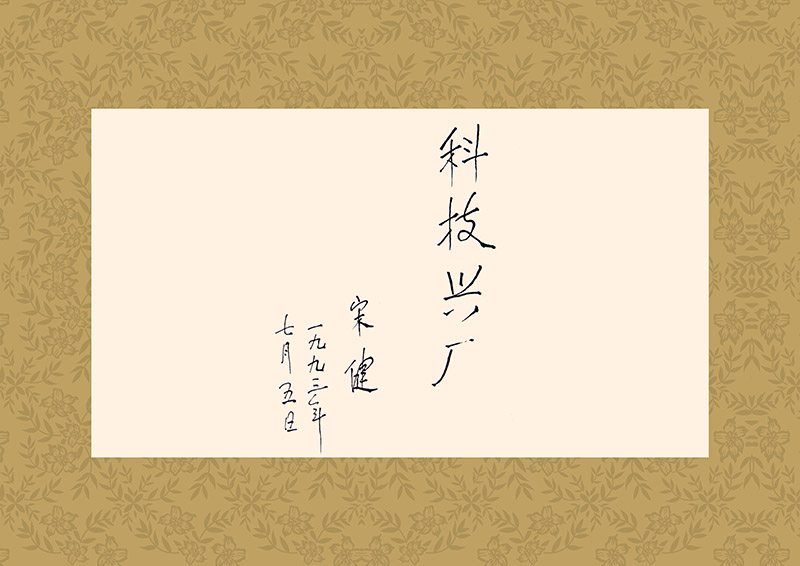 科技兴厂
宋健
一九九三年
七月五日